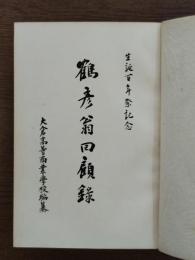 生誕百年祭記念
鶴彦翁回顧錄
大倉高等商業學校編纂